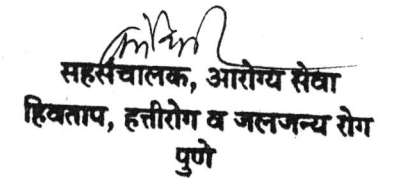 सहसंचालक, आरोग्य सेवा
हिवताप, हत्तीरोग व जलजन्य रोग
पुणे